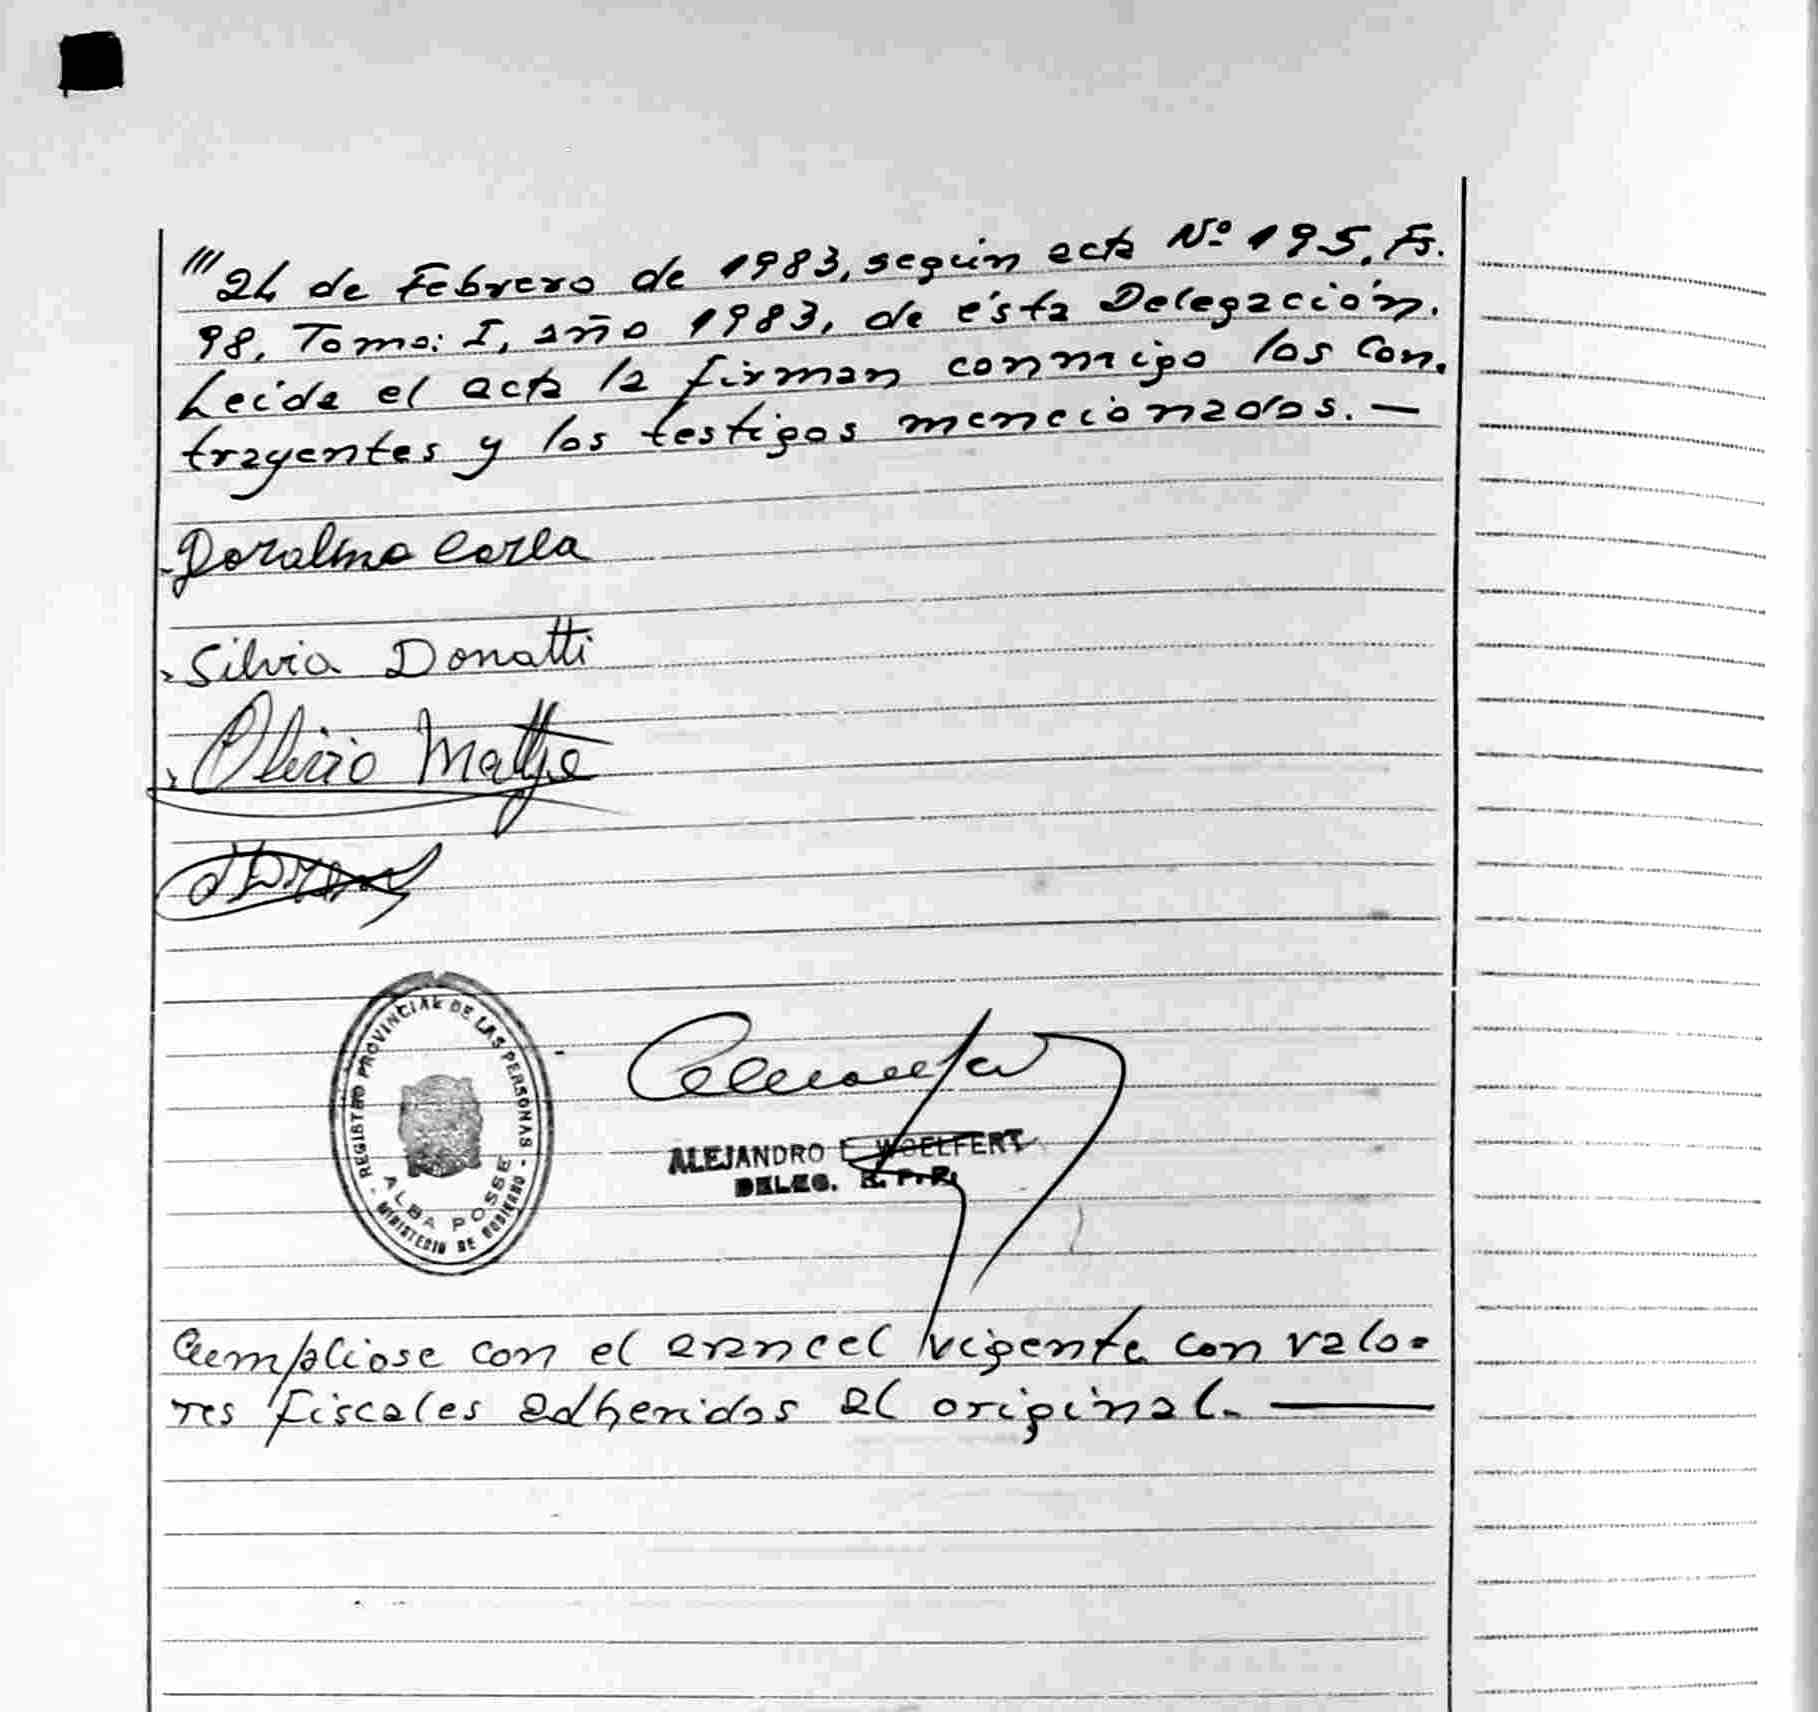 /// 24 de Febrero de 1983, según acta Nº 195, Fs.
98, Tomo: I, año 1983, de ésta Delegación.
Leida el acta la firman conmigo los con.
trayentes y los testigos mencionados. —
Silvia Donatti
REGISTRO PROVINCIAL DE LAS PERSONAS
ALBA POSSE
- MINISTERIO DE GOBIERNO -
ALEJANDRO E. WOELFERT
DELEG. R. P. P.
Cumpliose con el arancel vigente con valo-
res fiscales adheridos al original. —